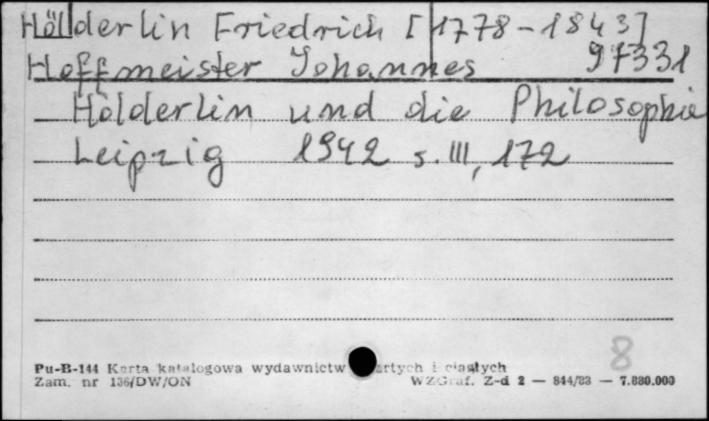 Hölderlin Friedrich [1778-1843]
Hoffmeister Johannes 97331
Hölderlin und die Philosophie
Leipzig 1942 s. III, 172
8
Pu-B-144 Karta katalogowa wydawnictw i ciągłych
Zam. nr 136/DW/ON WZGraf. Z-d 2 — 844/83 — 7.880.000